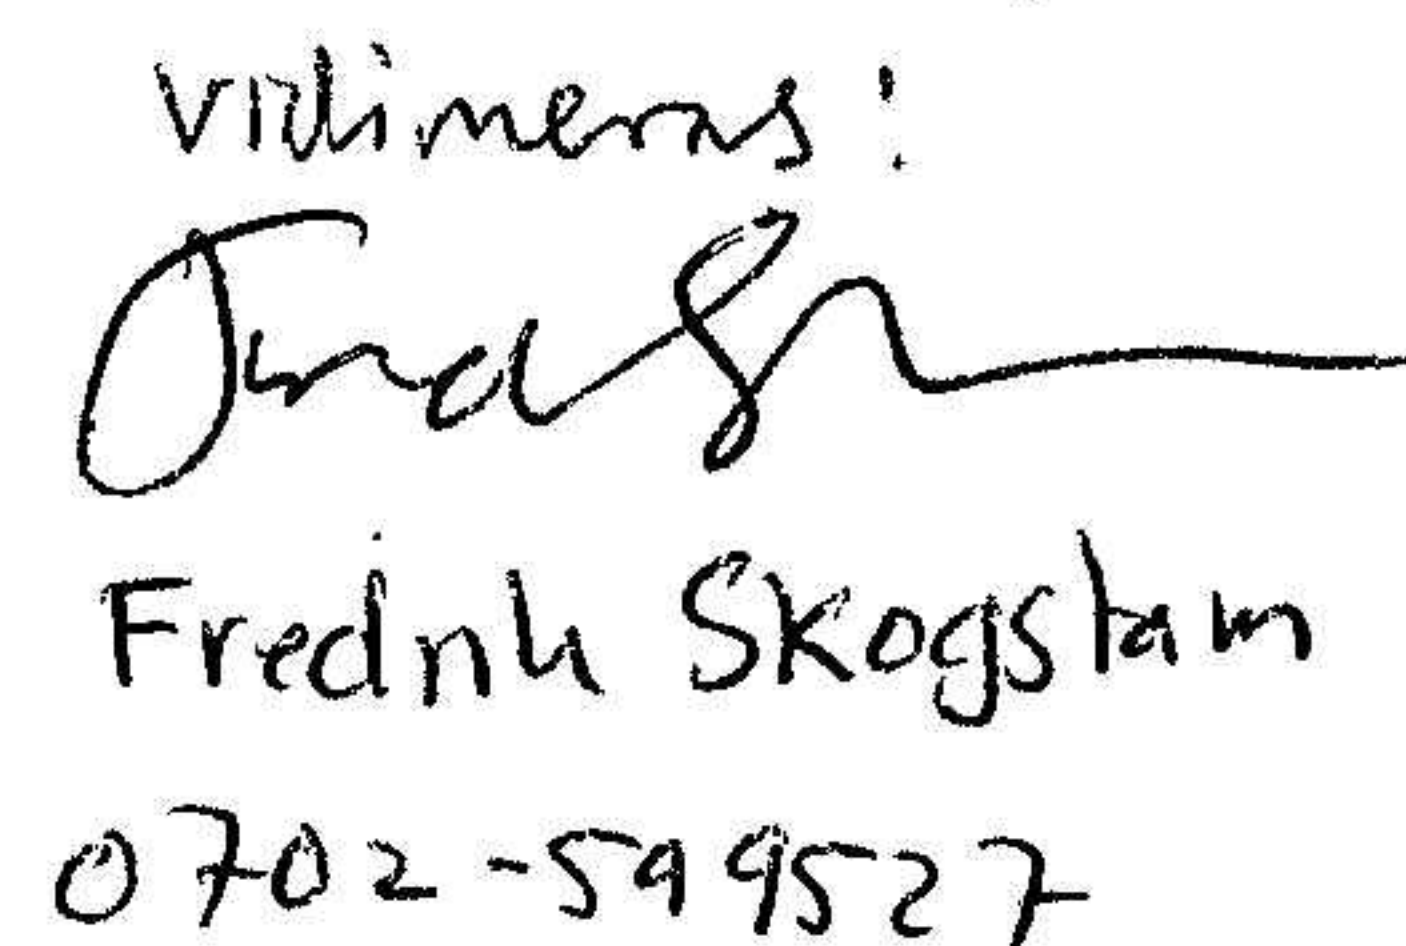 Vidimeras!
Fredrik Skogstam
0702-599527